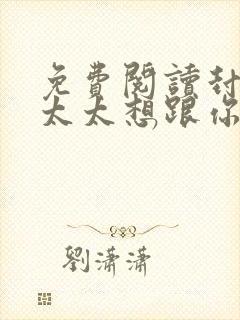 免費閱讀封
太太想跟你
劉瀟瀟